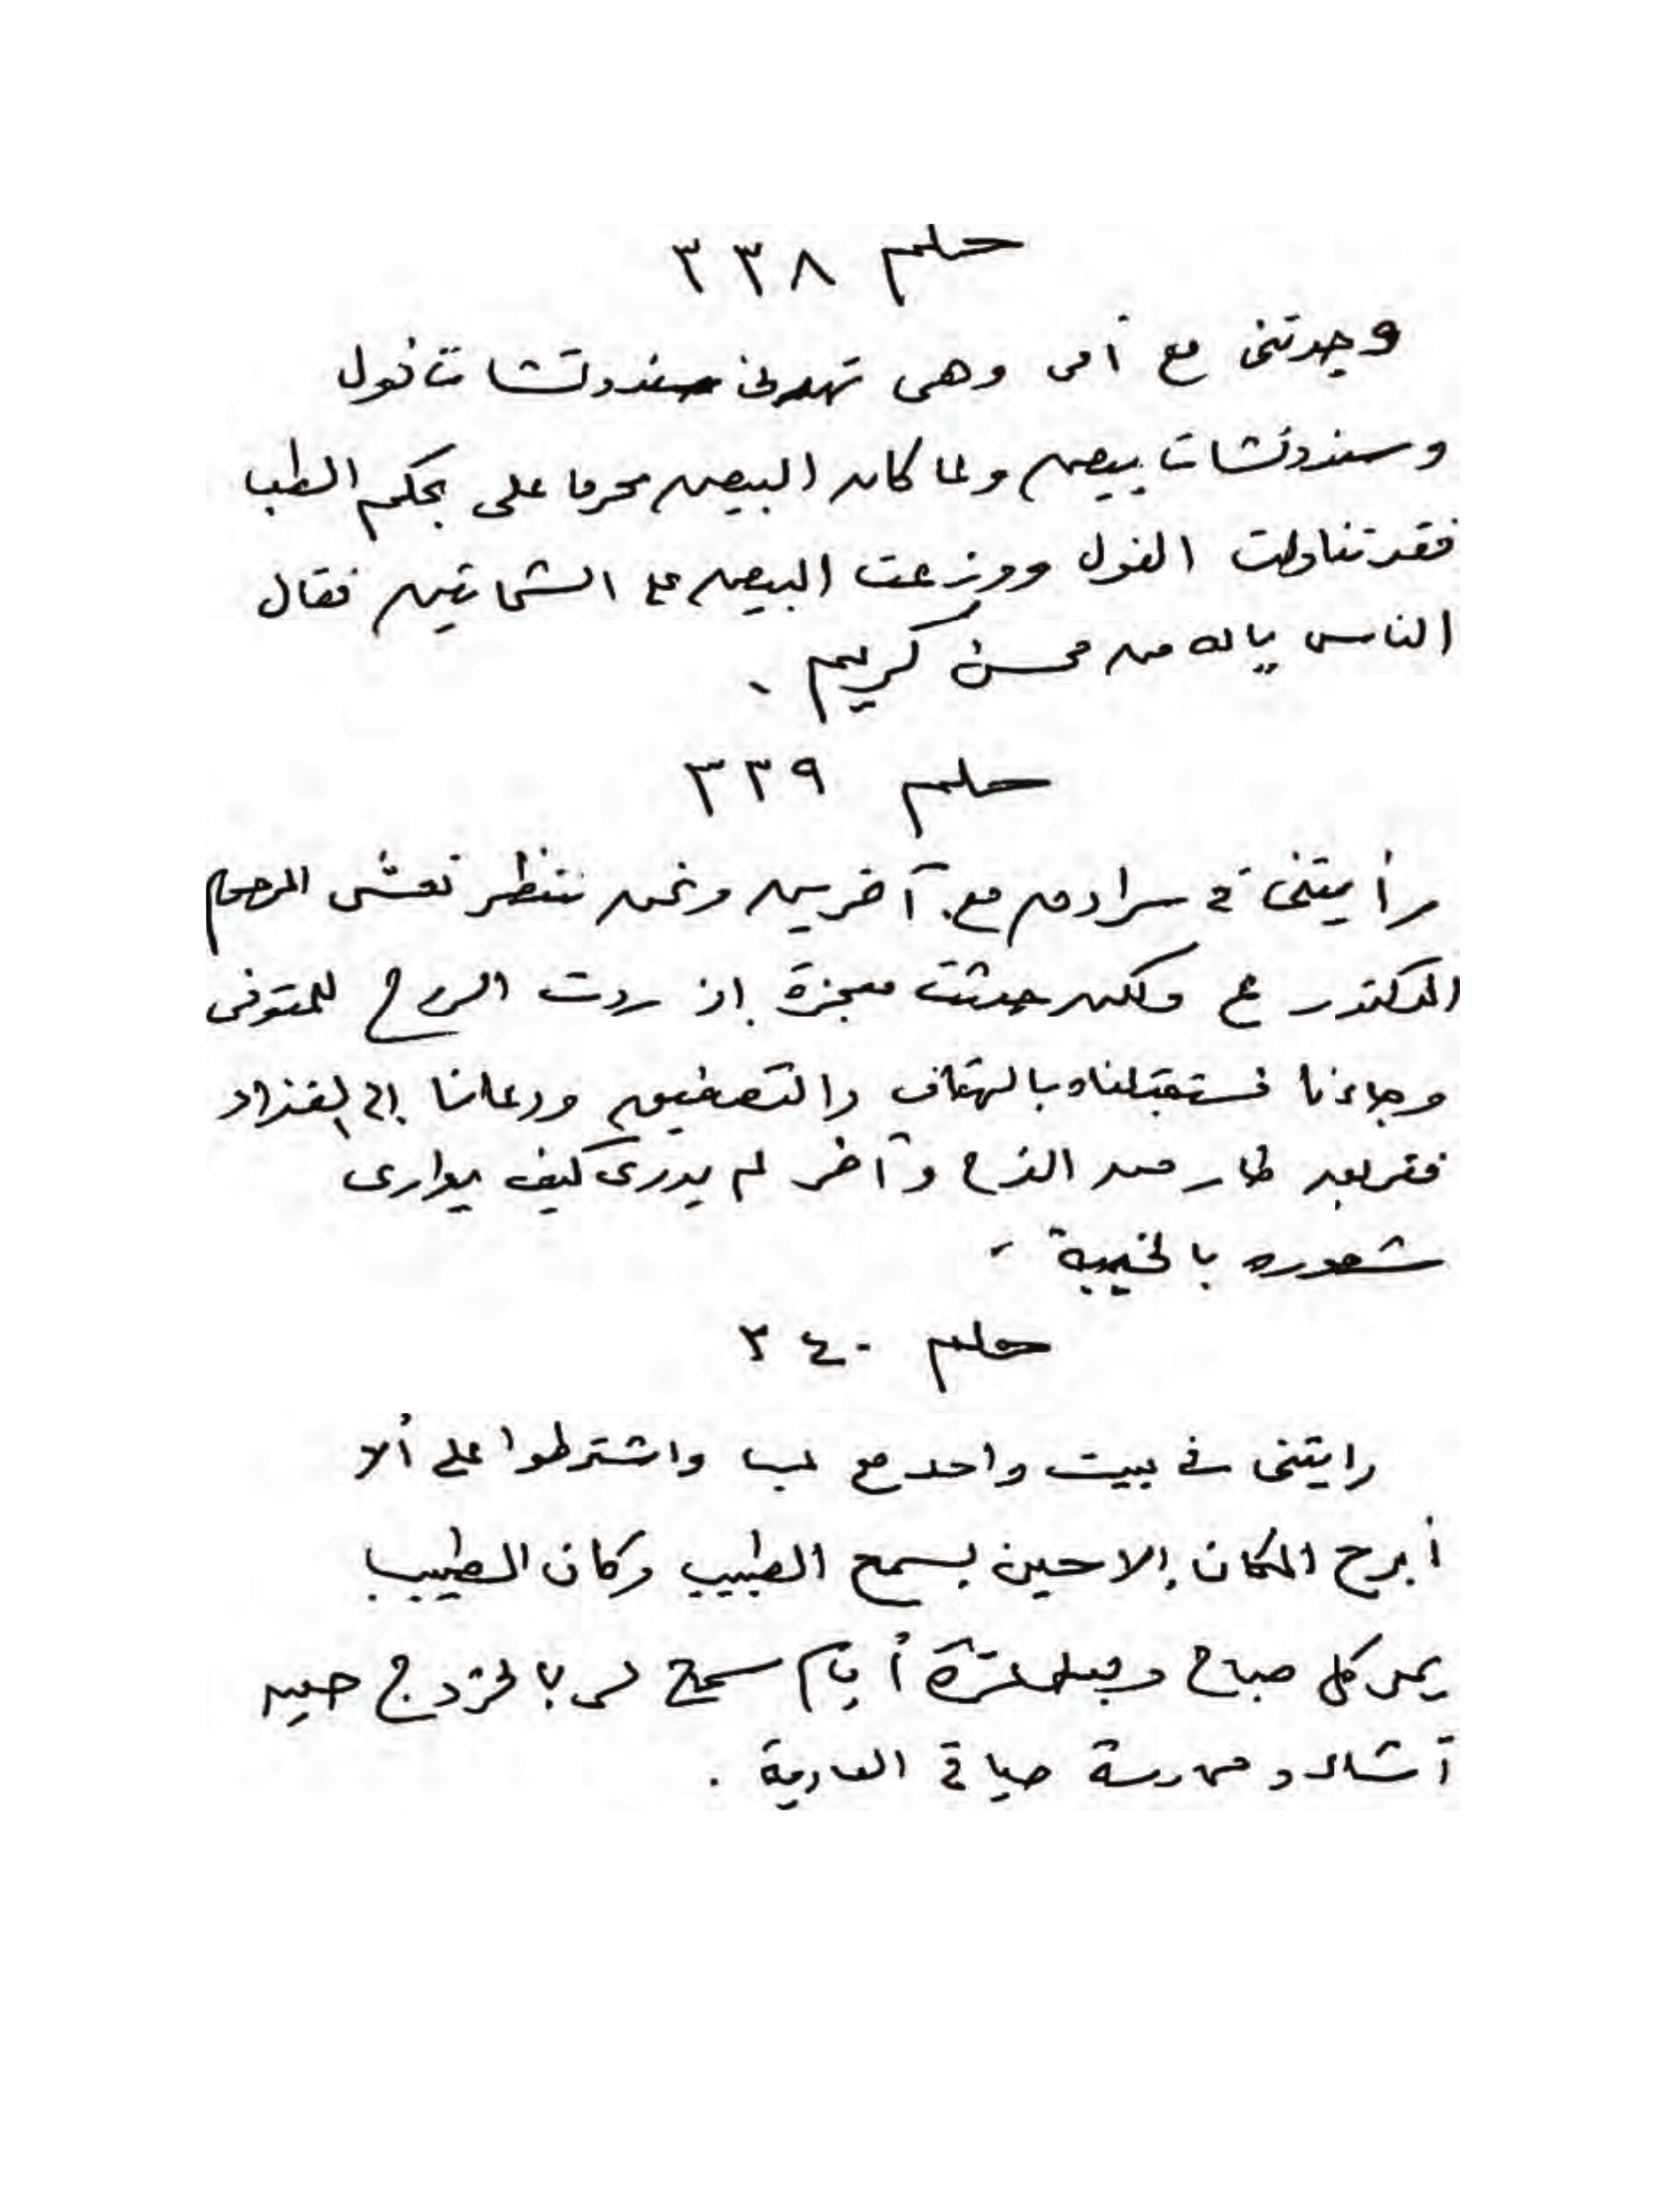 حلم ٣٣٨
وجدتنى مع أمى وهى تهدينى سندوتشات فول
وسندوتشات بيض ولما كان البيض محرما على بحكم الطب
فقد تناولت الفول ووزعت البيض على الشحاتين فقال
الناس ياله من محسن كريم .
حلم ٣٣٩
رأيتنى فى سرادق مع آخرين ونحن ننتظر نعش المرحوم
الدكتور ع ولكن حدثت معجزة إذ ردت الروح للمتوفى
وجاءنا فستقبلناه بالهتاف والتصفيق ودعانا إلى الغذاء
طار من الفرح وآخر لم يدرى كيف يوارى
شعوره بالخيبة .
حلم ٣٤٠
رايتنى فى بيت واحد مع واشترطوا على ألا
أبرح المكان إلا حين يسمح الطبيب وكان الطبيب
يمر كل صباح وبعد عشرة أيام سمح لى بالخروج حين
أشاء وممارسة حياتى العادية .